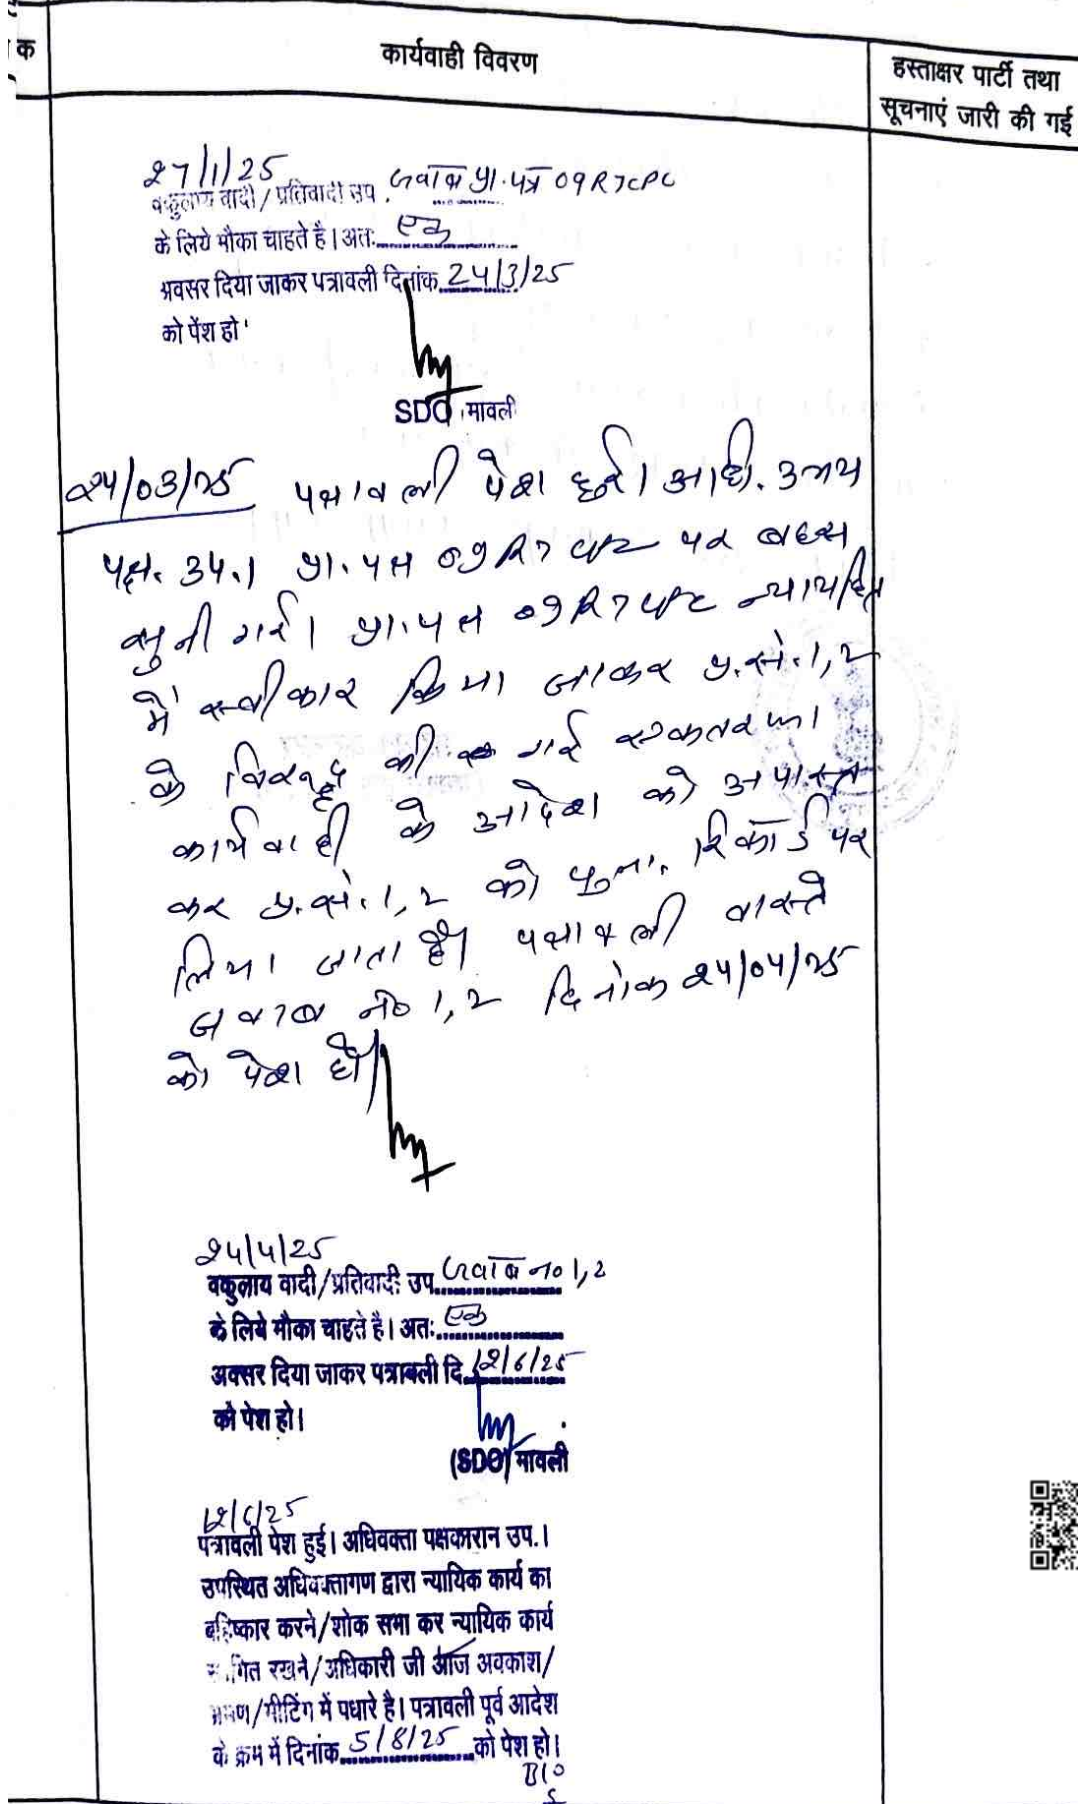 क
कार्यवाही विवरण
हस्ताक्षर पार्टी तथा
सूचनाएं जारी की गई
27/1/25
वकुलाय वादी/प्रतिवादी उप. जवाब प्रा.पत्र 09R7CPC
के लिये मौका चाहते है। अतः एक
अवसर दिया जाकर पत्रावली दिनांक 24/3/25
को पेंश हो
SDO मावली
24/03/25 पत्रावली पेश हुई। अधि. उभय
पक्ष. उप.। प्रा.पत्र 09R7 CPC पर बहस
सुनी गई। प्रा.पत्र 09R7 CPC न्यायहित
में स्वीकार किया जाकर प्र.सं.1,2
के विरुद्ध की गई एकतरफा
कार्यवाही के आदेश को अपास्त
कर प्र.सं.1,2 को पुनः रिकॉर्ड पर
लिया जाता है। पत्रावली वास्ते
जवाब नं० 1,2 दिनांक 24/04/25
को पेश हो।
24/4/25
वकुलाय वादी/प्रतिवादी उप. जवाब न० 1,2
के लिये मौका चाहते है। अतः एक
अवसर दिया जाकर पत्रावली दि. 12/6/25
को पेश हो।
(SDO) मावली
12/6/25
पत्रावली पेश हुई। अधिवक्ता पक्षकारान उप.।
उपस्थित अधिवक्तागण द्वारा न्यायिक कार्य का
बहिष्कार करने/शोक सभा कर न्यायिक कार्य
स्थगित रखने/अधिकारी जी आज अवकाश/
भ्रमण/मीटिंग में पधारे है। पत्रावली पूर्व आदेश
के क्रम में दिनांक 5/8/25 को पेश हो।